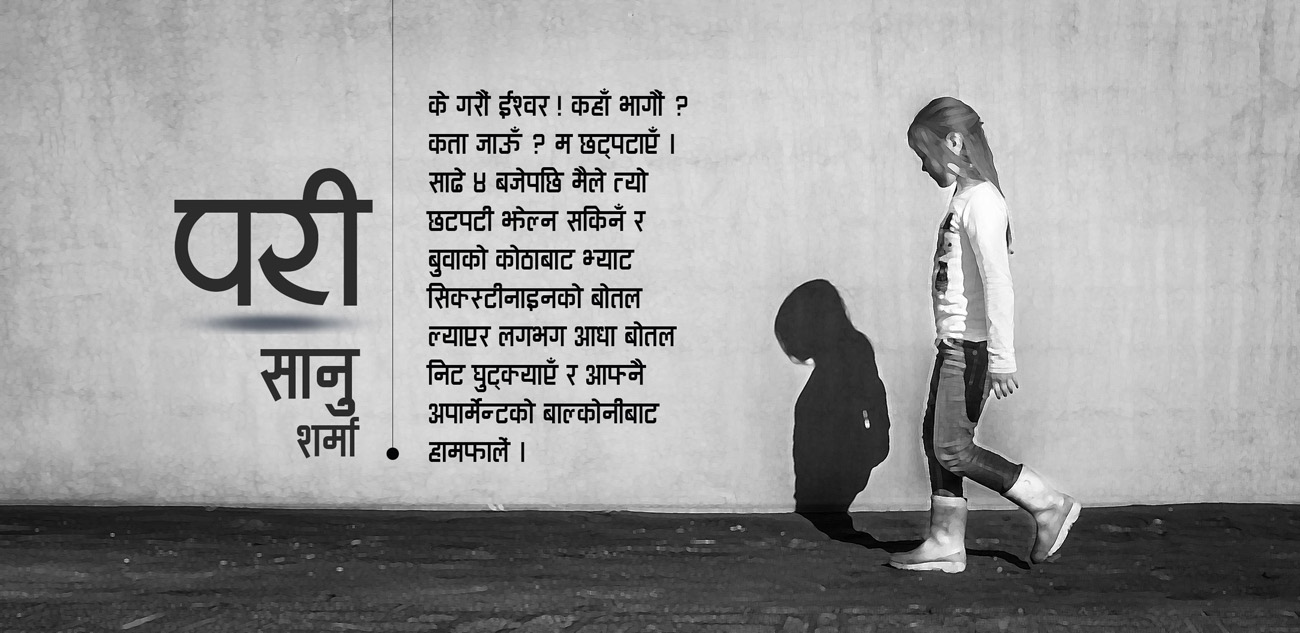 परी
सानु
शर्मा
के गरौं ईश्वर ! कहाँ भागौं ?
कता जाऊँ ? म छट्पटाएँ ।
साढे ४ बजेपछि मैले त्यो
छटपटी झेल्न सकिनँ र
बुवाको कोठाबाट भ्याट
सिक्स्टीनाइनको बोतल
ल्याएर लगभग आधा बोतल
निट घुट्क्याएँ र आफ्नै
अपार्मेन्टको बाल्कोनीबाट
हामफालें ।